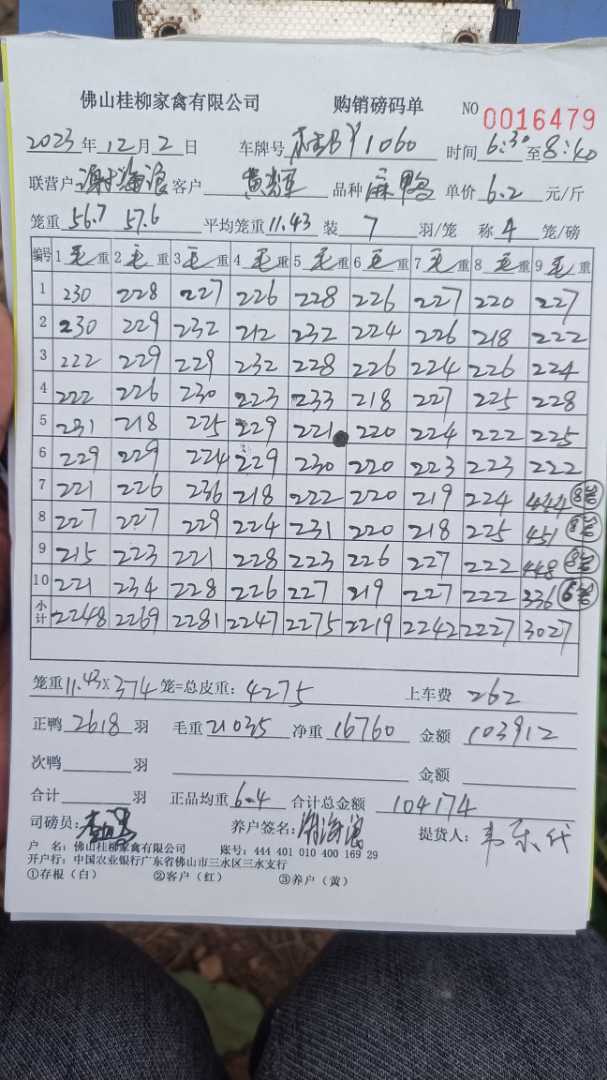 佛山桂柳家禽有限公司 购销磅码单 NO 0016479
2023年12月2日 车牌号 桂BY1060 时间 6:30至8:40
联营户 海浪 客户 黄辉 品种 麻鸭 单价 6.2 元/斤
笼重 56.7 57.6 平均笼重 11.43 装 7 羽/笼 称 4 笼/磅
编号 1毛重 2毛重 3毛重 4毛重 5毛重 6毛重 7毛重 8毛重 9毛重
1 230 228 227 226 228 226 227 220 227
2 230 229 232 212 232 224 226 218 222
3 222 229 229 232 228 226 224 226 224
4 222 226 230 223 233 218 227 225 228
5 231 218 225 229 221 220 224 222 225
6 229 229 224 229 230 220 223 223 222
7 221 226 236 218 222 220 219 224 444 8笼
8 227 227 229 224 231 220 218 225 451 8笼
9 215 223 221 228 223 226 227 222 448 8笼
10 221 234 228 226 227 219 227 222 336 6笼
小计 2248 2269 2281 2247 2275 2219 2242 2227 3027
笼重 11.43×374 笼=总皮重: 4275 上车费 262
正鸭 2618 羽 毛重 21035 净重 16760 金额 103912
次鸭 羽 金额
合计 羽 正品均重 6.4 合计总金额 104174
司磅员: 养户签名: 海浪 提货人: 韦
户 名: 佛山桂柳家禽有限公司 账号: 444 401 010 400 169 29
开户行: 中国农业银行广东省佛山市三水区三水支行
①存根（白） ②客户（红） ③养户（黄）